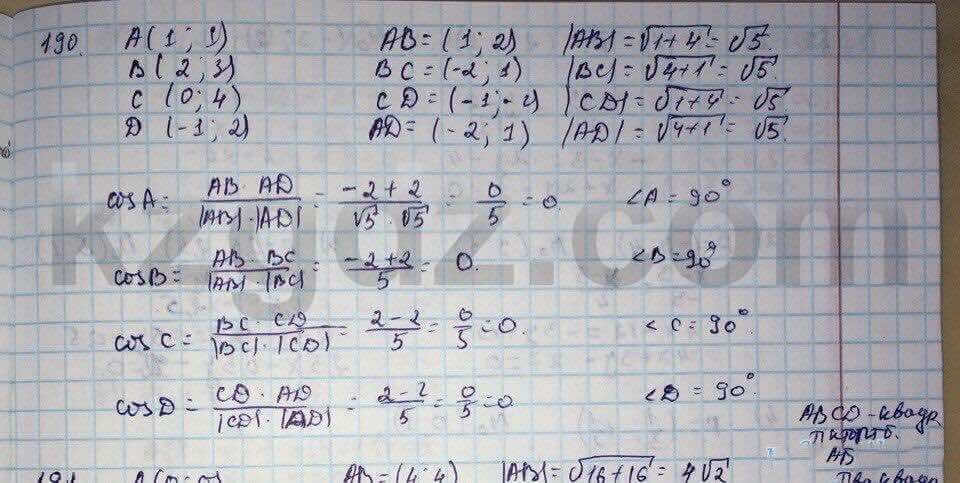 190. A(1; 1) AB = (1; 2) |AB| = √1+4 = √5.
B(2; 3) BC = (-2; 1) |BC| = √4+1 = √5.
C (0; 4) CD = (-1; -2) |CD| = √1+4 = √5.
D (-1; 2) AD = (-2; 1) |AD| = √4+1 = √5.
cosA = AB · AD / |AB| · |AD| = -2+2 / √5 · √5 = 0/5 = 0. <A = 90°
cosB = AB · BC / |AB| · |BC| = -2+2 / 5 = 0. <B = 90°
cosC = BC · CD / |BC| · |CD| = 2-2 / 5 = 0/5 = 0. <C = 90°
cosD = CD · AD / |CD| · |AD| = 2-2 / 5 = 0/5 = 0 <D = 90°
ABCD - квадр
АВ
191. A(0; 0) AB = (4; 4) |AB| = √16+16 = 4√2
kzgdz.com